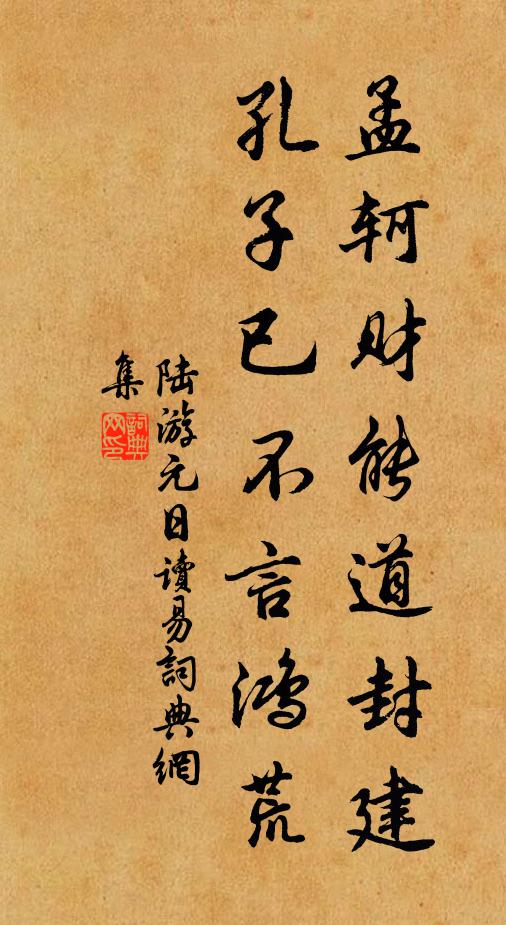 孟轲财能道封建
孔子已不言鸿荒
陆游元日讀易詞典網
集
詞典
网印